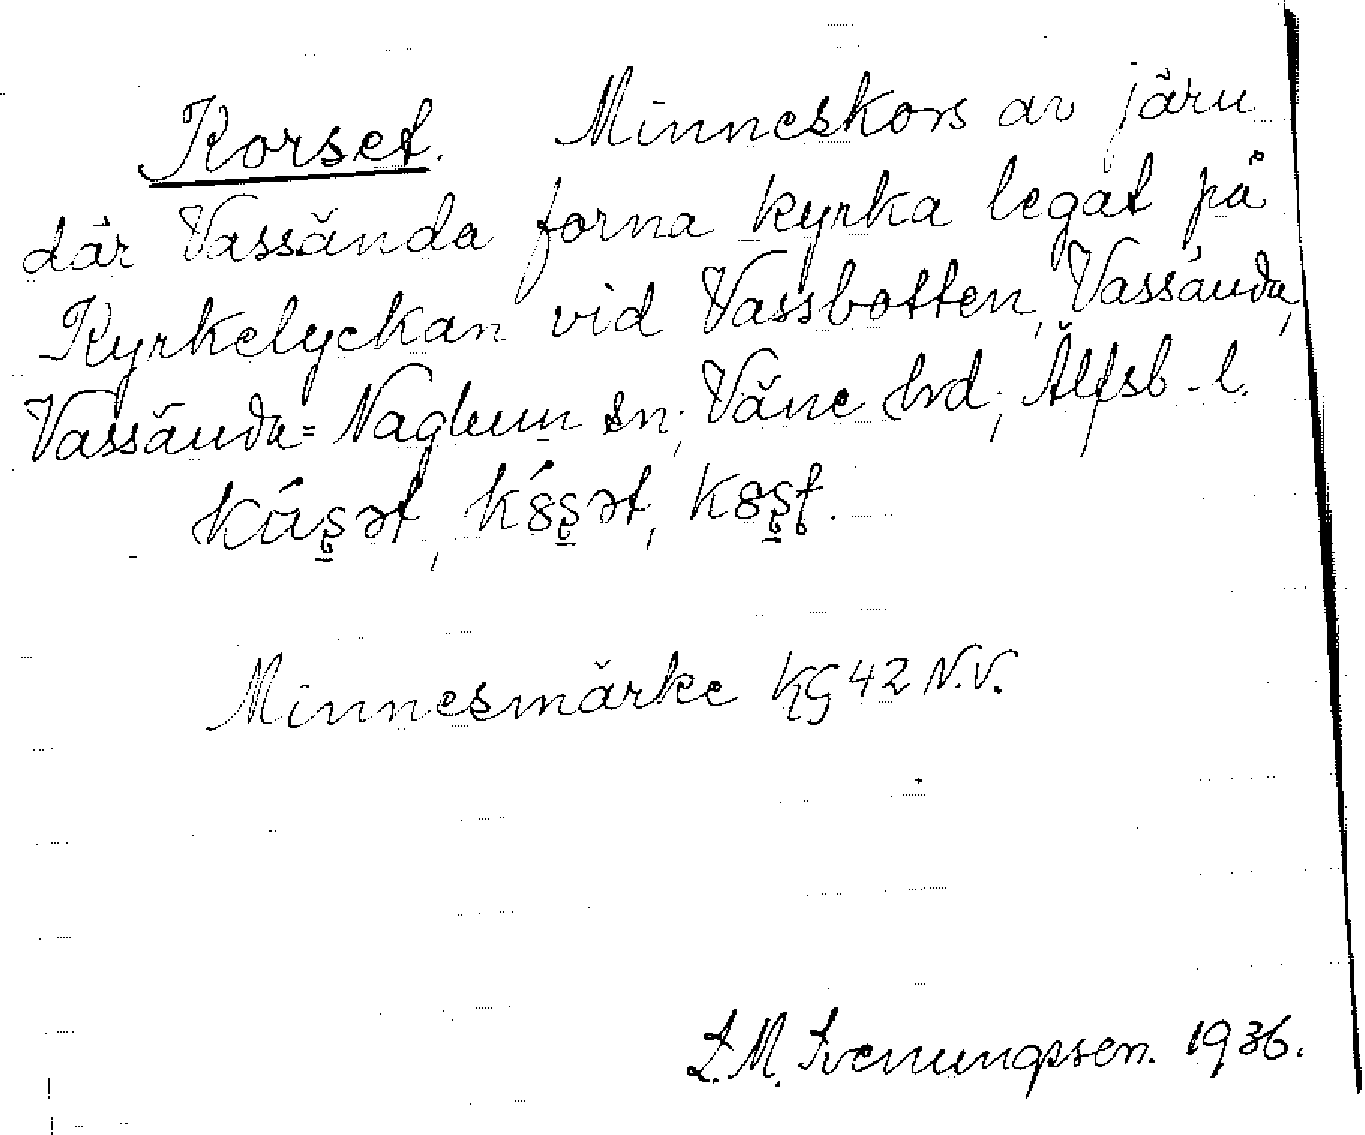 Korset. Minneskors av järn
där Vassända forna kyrka legat på
Kyrkelyckan vid Vassbotten, Vassända,
Vassända=Naglum sn, Väne hrd, Älfsb-l.
Minnesmärke KG 42 N.V.
L.M. Svenungsson. 1936.